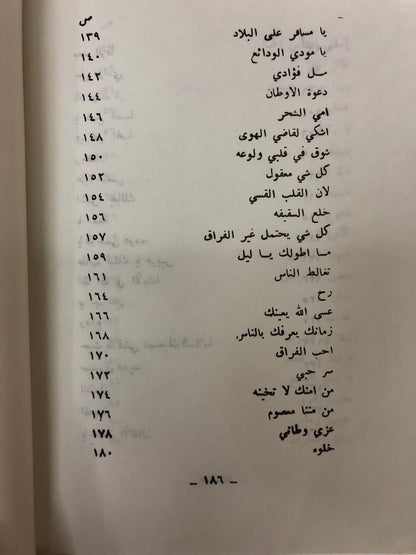 ص
يا مسافر على البلاد ١٣٩
يا مودي الودائع ١٤٠
سل فؤادي ١٤٢
دعوة الاوطان ١٤٤
امي الشحر ١٤٦
اشكي لقاضي الهوى ١٤٨
شوق في قلبي ولوعه ١٥٠
كل شي معقول ١٥٢
لان القلب القسي ١٥٤
خلع السقيفه ١٥٦
كل شي يحتمل غير الفراق ١٥٧
مـا اطولك يـا ليل ١٥٩
تغالط الناس ١٦١
رح ١٦٤
عسى الله يعينك ١٦٦
زمانك يعرفك بالناس. ١٦٨
احب الفراق ١٧٠
سر حبي ١٧٢
من امنك لا تخينه ١٧٤
من مننا معصوم ١٧٦
عزي وطائي ١٧٨
خلوه ١٨٠
– ١٨٦ –